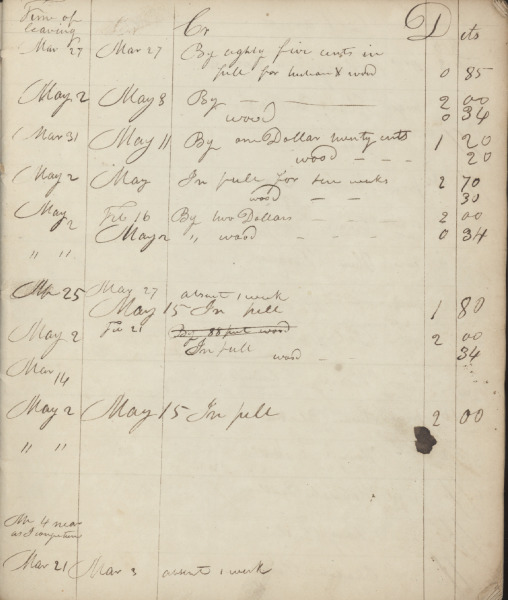 Time of
leaving Cr D cts
Mar 27 Mar 27 By eighty five cents in
full for tuition & wood 0 85
May 2 May 8 By — — 2 00
wood 0 34
Mar 31 May 11 By one Dollar twenty cents 1 20
wood — - - 20
May 2 May In full for ten weeks 2 70
wood — — 30
May 2 Feb 16 By two Dollars — — 2 00
May 2 " wood - - - - 0 34
" "
25 May 27 absent 1 week
May 15 In full 1 80
May 2 Feb 21 By 88 wood 2 00
In full
wood - - 34
Mar 14
May 2 May 15 In full 2 00
" "
4 near
as I
Mar 21 Mar 3 absent 1 week